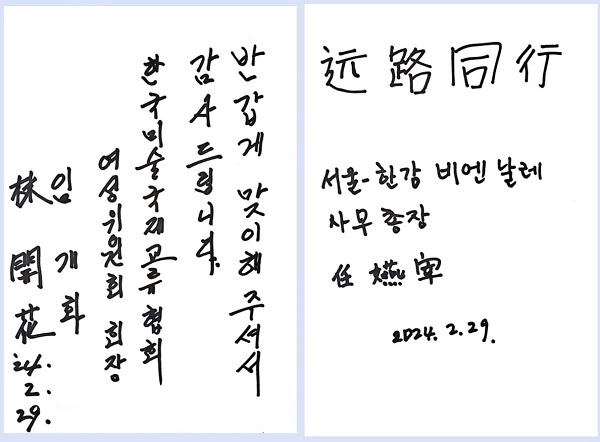 반갑게 맞이해주셔서
감사드립니다.
한국미술국제교류협회
여성위원회 회장
임 개화
林 開花 '24. 2. 29.
远路同行
서울-한강 비엔날레
사무총장
任 宰
2024. 2. 29.